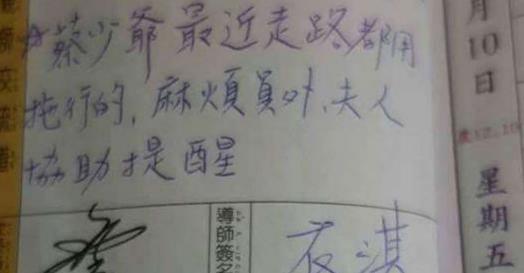 蔡少爺最近走路都用
拖行的,麻煩員外、夫人
協助提醒
導師簽名
月10日
星期五